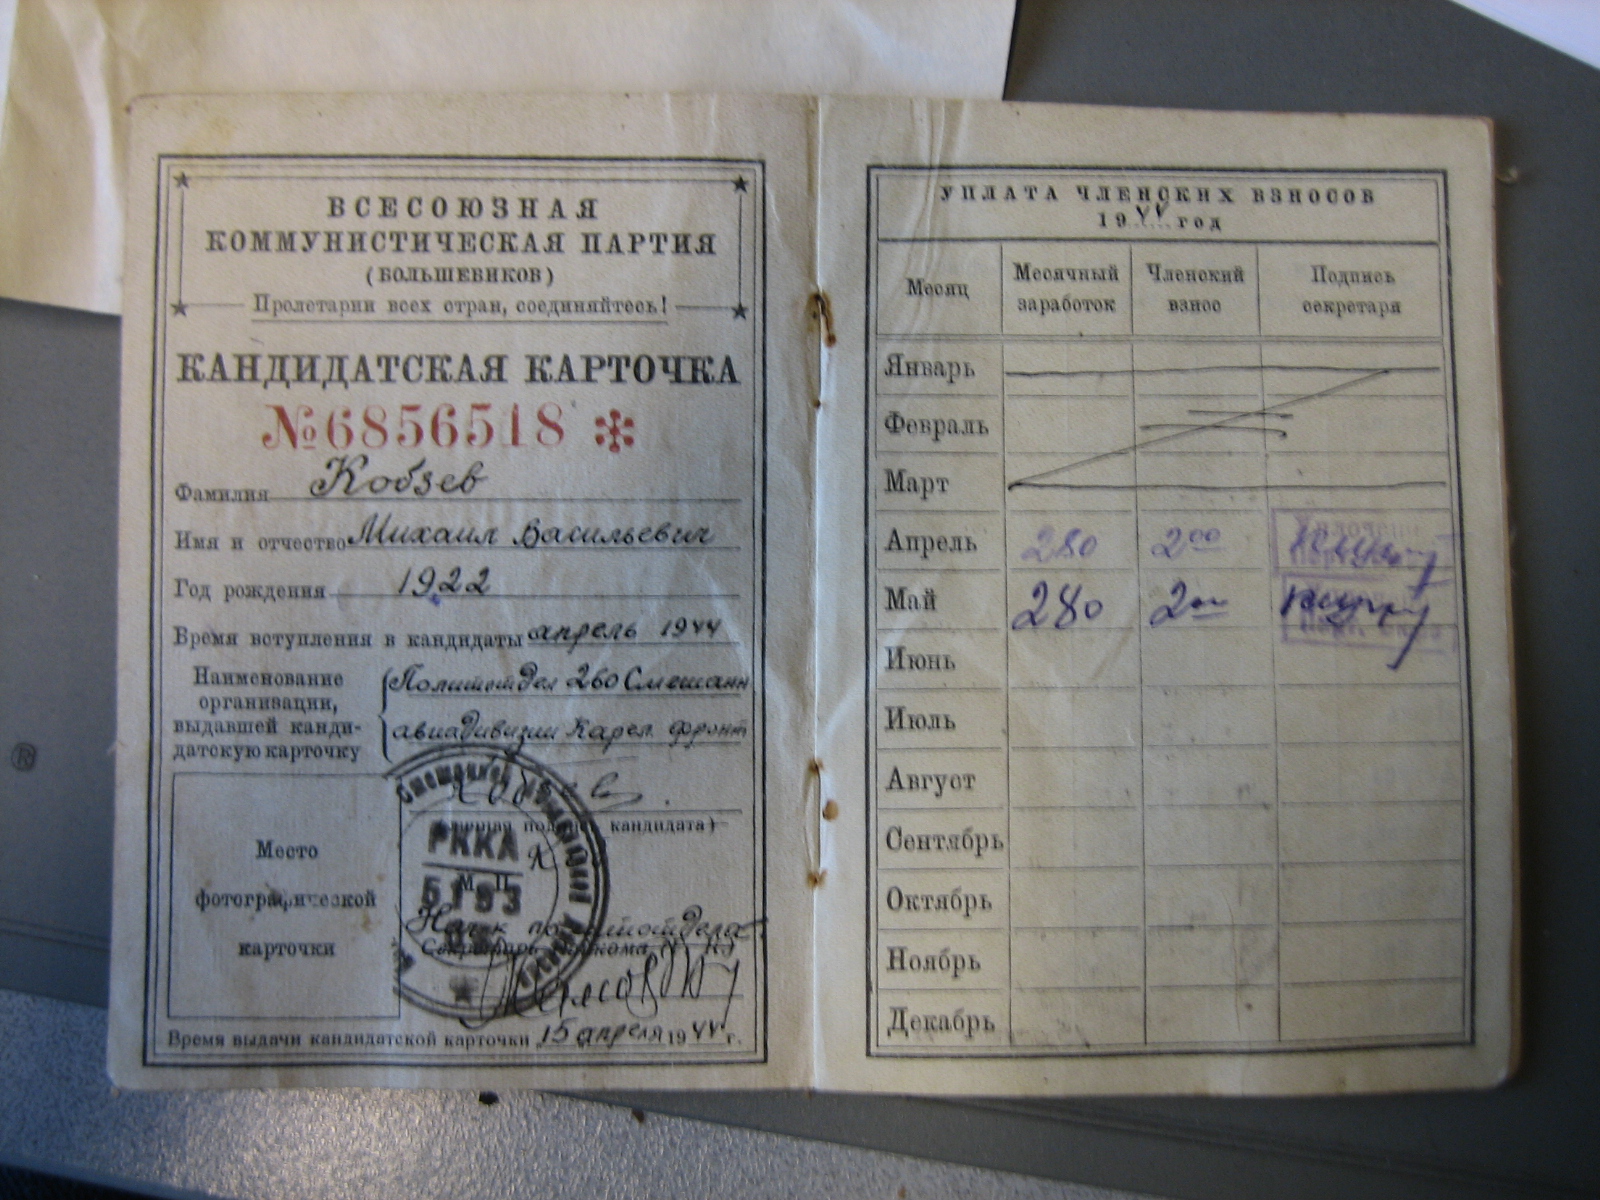 ВСЕСОЮЗНАЯ
КОММУНИСТИЧЕСКАЯ ПАРТИЯ
(БОЛЬШЕВИКОВ)
Пролетарии всех стран, соединяйтесь!
КАНДИДАТСКАЯ КАРТОЧКА
№6856518
Фамилия Кобзев
Имя и отчество Михаил Васильевич
Год рождения 1922
Время вступления в кандидаты апрель 1944
Наименование
организации,
выдавшей канди-
датскую карточку
Политотдел 260 Смешанн
авиадивизии Карел. фронт
подпись кандидата)
РККА
М. П.
5193
Место
фотографической
карточки
Нач-к политотдела
Время выдачи кандидатской карточки 15 апреля 1944 г.
УПЛАТА ЧЛЕНСКИХ ВЗНОСОВ
1944 год
Месяц Месячный заработок Членский взнос Подпись секретаря
Январь
Февраль
Март
Апрель 280 2 00
Май 280 2
Июнь
Июль
Август
Сентябрь
Октябрь
Ноябрь
Декабрь
®